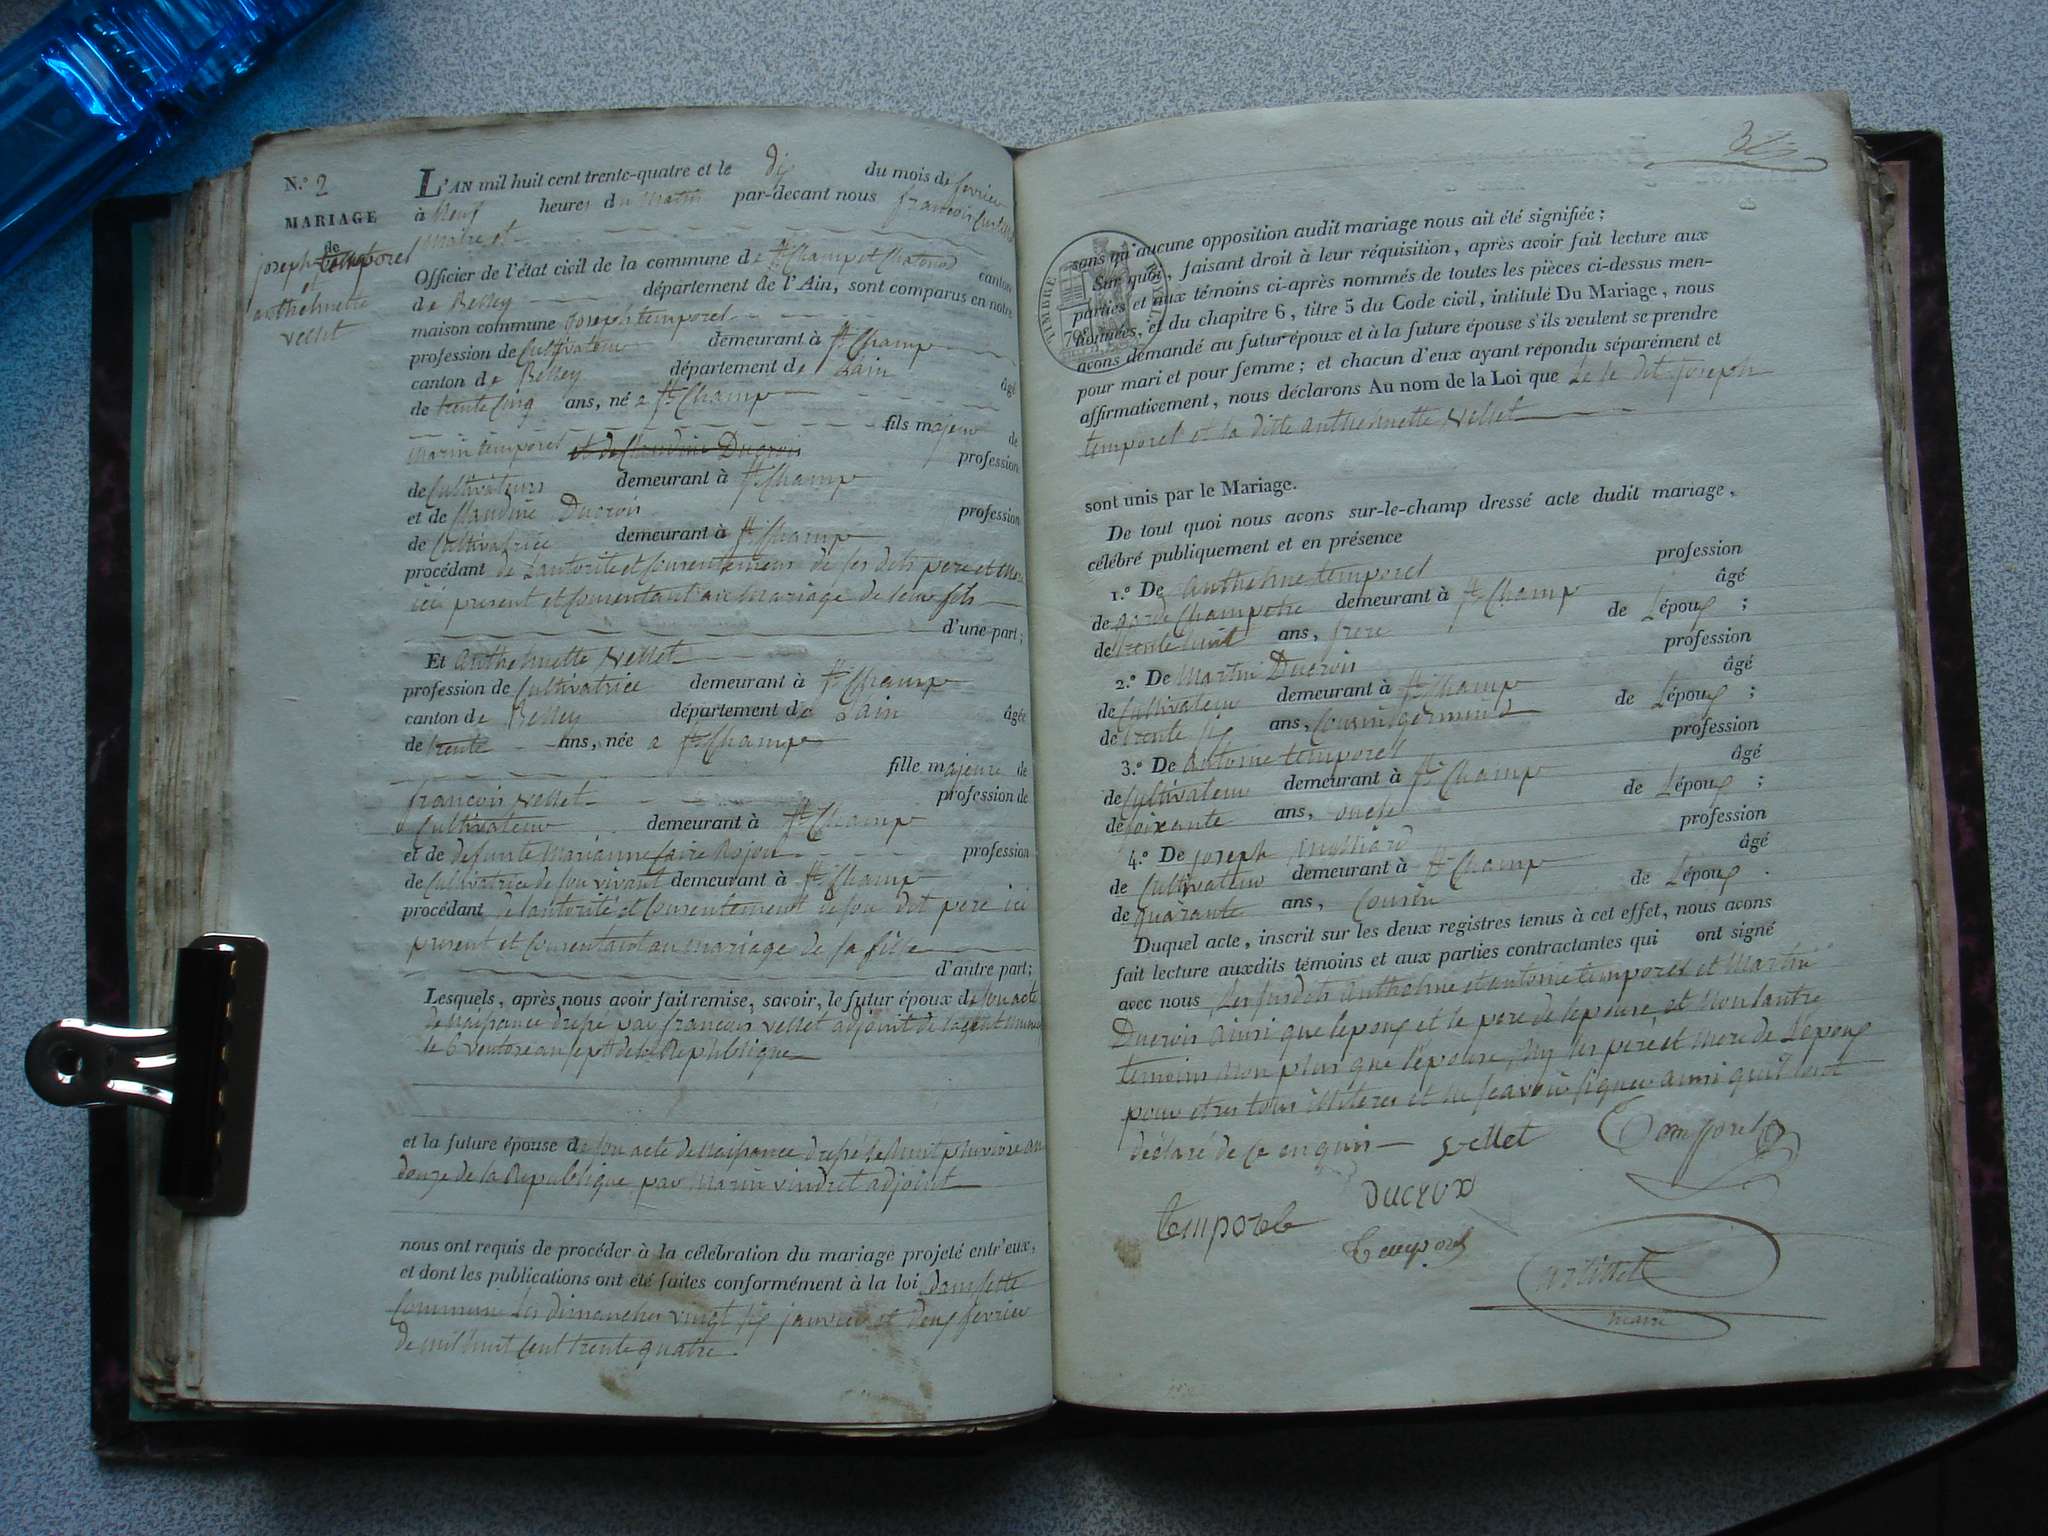 N.º 2
MARIAGE
de
joseph temporel
&
anthelmette
vellet
L'AN mil huit cent trente-quatre et le dix du mois de fevrier
à Neuf heures du Matin par-devant nous francois
Maire et
Officier de l'état civil de la commune de St Champ et Chatonod canton
de Belley département de l'Ain, sont comparus en notre
maison commune Joseph temporel
profession de Cultivateur demeurant à St Champ
canton de Belley département de Lain âgé
de trente Cinq ans, né a St Champ
fils majeur de
Marin temporel et de Claudine Ducroix profession
de Cultivateurs demeurant à St Champ
et de Claudine Ducroix profession
de Cultivatrice demeurant à St Champ
procédant de Lautorité et Consentement de ses dits pere et Mere
ici present et Consentant au Mariage de leur fils
d'une part;
Et Anthelmette Vellet
profession de Cultivatrice demeurant à St Champ
canton de Belley département de Lain âgée
de trente ans, née a St Champ
fille majeure de
francois vellet profession de
Cultivateur demeurant à St Champ
et de defunte Marianne Claire profession
de Cultivatrice de son vivant demeurant à St Champ
procédant de lautorité et Consentement de son dit pere ici
present et Consentant au Mariage de sa fille
d'autre part;
Lesquels, après nous avoir fait remise, savoir, le futur époux de son acte
de Naissance dressé par francois vellet adjoint de la
le 6 ventose an sept de la Republique
et la future épouse de son acte de Naissance dressé le huit pluviose an
douze de la Republique par Marin vindret adjoint
nous ont requis de procéder à la célébration du mariage projeté entr'eux,
et dont les publications ont été faites conformément à la loi dans cette
Commune les dimanches vingt six janvier et deux fevrier
de mil huit Cent trente quatre
sans qu'aucune opposition audit mariage nous ait été signifiée;
Sur quoi, faisant droit à leur réquisition, après avoir fait lecture aux
parties et aux témoins ci-après nommés de toutes les pièces ci-dessus men-
tionnées, et du chapitre 6, titre 5 du Code civil, intitulé Du Mariage, nous
avons demandé au futur époux et à la future épouse s'ils veulent se prendre
pour mari et pour femme; et chacun d'eux ayant répondu séparément et
affirmativement, nous déclarons Au nom de la Loi que Le dit joseph
temporel et la ditte anthelmette Vellet
TIMBRE ROYAL
sont unis par le Mariage.
De tout quoi nous avons sur-le-champ dressé acte dudit mariage,
célébré publiquement et en présence
1.º De Anthelme temporel profession
de garde Champetre demeurant à St Champ âgé
de trente huit ans, frere de Lépoux ;
2.º De Martin Ducroix profession
de Cultivateur demeurant à St Champ âgé
de trente six ans, Cousin germain de Lépoux ;
3.º De antoine temporel profession
de Cultivateur demeurant à St Champ âgé
de soixante ans, oncle de Lépoux ;
4.º De joseph profession
de Cultivateur demeurant à St Champ âgé
de quarante ans, Cousin de Lépoux .
Duquel acte, inscrit sur les deux registres tenus à cet effet, nous avons
fait lecture auxdits témoins et aux parties contractantes qui ont signé
avec nous Les susdits Anthelme et antoine temporel et Martin
Ducroix ainsi que lepoux et le pere de lepouse, et Non lautre
temoins Non plus que l'epouse, Ny les pere et Mere de L'epoux
pour etres tous illiteres et Ne scavoir signer ainsi quil lont
déclaré de ce enquis
vellet Temporel
temporel Ducrux
Temporel
maire